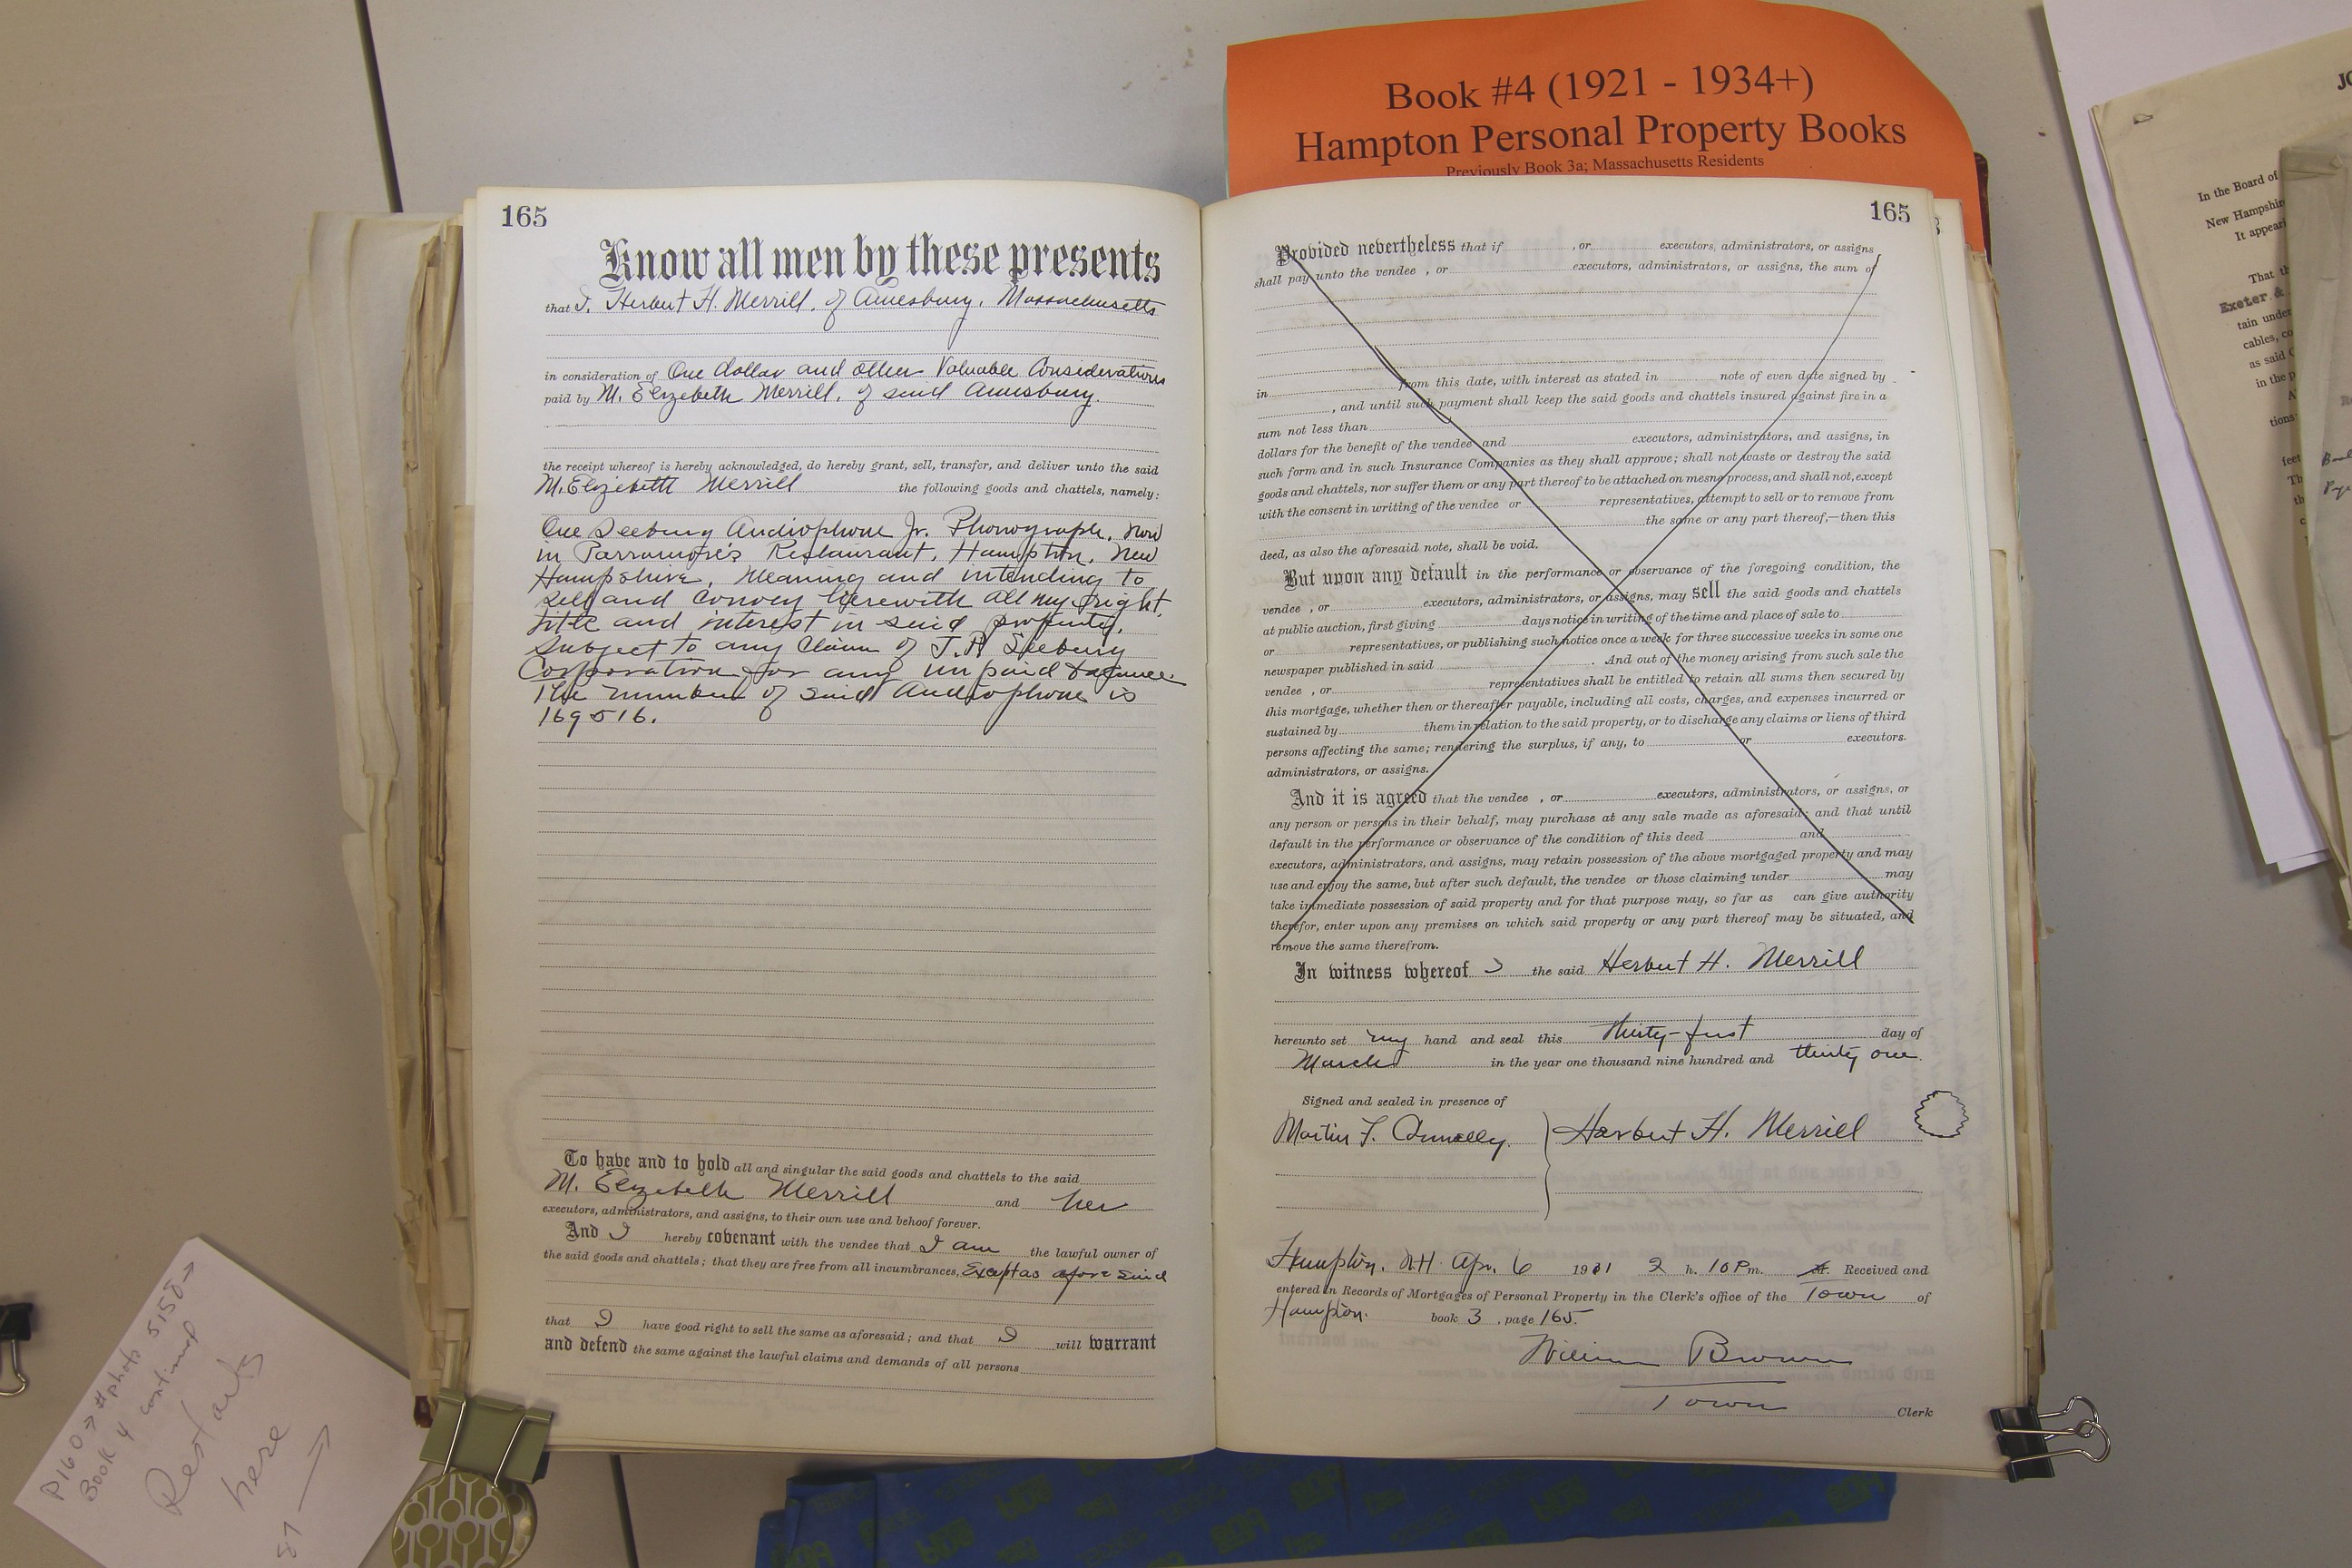 Book #4 (1921 - 1934+)
Hampton Personal Property Books
Previously Book 3a; Massachusetts Residents
165
Know all men by these presents
that I, Herbert H. Merrill, of Amesbury, Massachusetts
in consideration of One dollar and other Valuable Considerations
paid by M. Elizebeth Merrill, of said Amesbury.
the receipt whereof is hereby acknowledged, do hereby grant, sell, transfer, and deliver unto the said
M. Elizebeth Merrill the following goods and chattels, namely:
One Seeburg Audiophone Jr. Phonograph, now
in Parramore's Restaurant, Hampton, New
Hampshire, Meaning and intending to
sell and convey herewith all my right,
title and interest in said property,
Subject to any Claim of J.P. Seeburg
Corporation, for any unpaid balance.
The number of said Audiophone is
169516.
To have and to hold all and singular the said goods and chattels to the said
M. Elizebeth Merrill and her
executors, administrators, and assigns, to their own use and behoof forever.
And I hereby covenant with the vendee that I am the lawful owner of
the said goods and chattels; that they are free from all incumbrances, Except as afore said
that I have good right to sell the same as aforesaid; and that I will warrant
and defend the same against the lawful claims and demands of all persons
165
Provided nevertheless that if , or executors, administrators, or assigns
shall pay unto the vendee , or executors, administrators, or assigns, the sum of
in from this date, with interest as stated in note of even date signed by
, and until such payment shall keep the said goods and chattels insured against fire in a
sum not less than
dollars for the benefit of the vendee and executors, administrators, and assigns, in
such form and in such Insurance Companies as they shall approve; shall not waste or destroy the said
goods and chattels, nor suffer them or any part thereof to be attached on mesne process, and shall not, except
with the consent in writing of the vendee or representatives, attempt to sell or to remove from
the same or any part thereof,—then this
deed, as also the aforesaid note, shall be void.
But upon any default in the performance or observance of the foregoing condition, the
vendee , or executors, administrators, or assigns, may sell the said goods and chattels
at public auction, first giving days notice in writing of the time and place of sale to
or representatives, or publishing such notice once a week for three successive weeks in some one
newspaper published in said . And out of the money arising from such sale the
vendee , or representatives shall be entitled to retain all sums then secured by
this mortgage, whether then or thereafter payable, including all costs, charges, and expenses incurred or
sustained by them in relation to the said property, or to discharge any claims or liens of third
persons affecting the same; rendering the surplus, if any, to or executors.
administrators, or assigns.
And it is agreed that the vendee , or executors, administrators, or assigns, or
any person or persons in their behalf, may purchase at any sale made as aforesaid; and that until
default in the performance or observance of the condition of this deed and
executors, administrators, and assigns, may retain possession of the above mortgaged property and may
use and enjoy the same, but after such default, the vendee or those claiming under may
take immediate possession of said property and for that purpose may, so far as can give authority
therefor, enter upon any premises on which said property or any part thereof may be situated, and
remove the same therefrom.
In witness whereof I the said Herbert H. Merrill
hereunto set my hand and seal this thirty-first day of
March in the year one thousand nine hundred and thirty one.
Signed and sealed in presence of
Martin F. Connelly. Herbert H. Merrill
Hampton, N.H. Apr. 6 1931 2 h. 10 P m. M. Received and
entered in Records of Mortgages of Personal Property in the Clerk's office of the Town of
Hampton. book 3 , page 165.
William Brown
Town Clerk
P160 → # photo 5150 →
Book 4 continued
Restarts
here
87 →
In the Board of
New Hampshire
It appear
That th
Exeter &
tain under
cables, co
as said C
in the p
tions:
feet